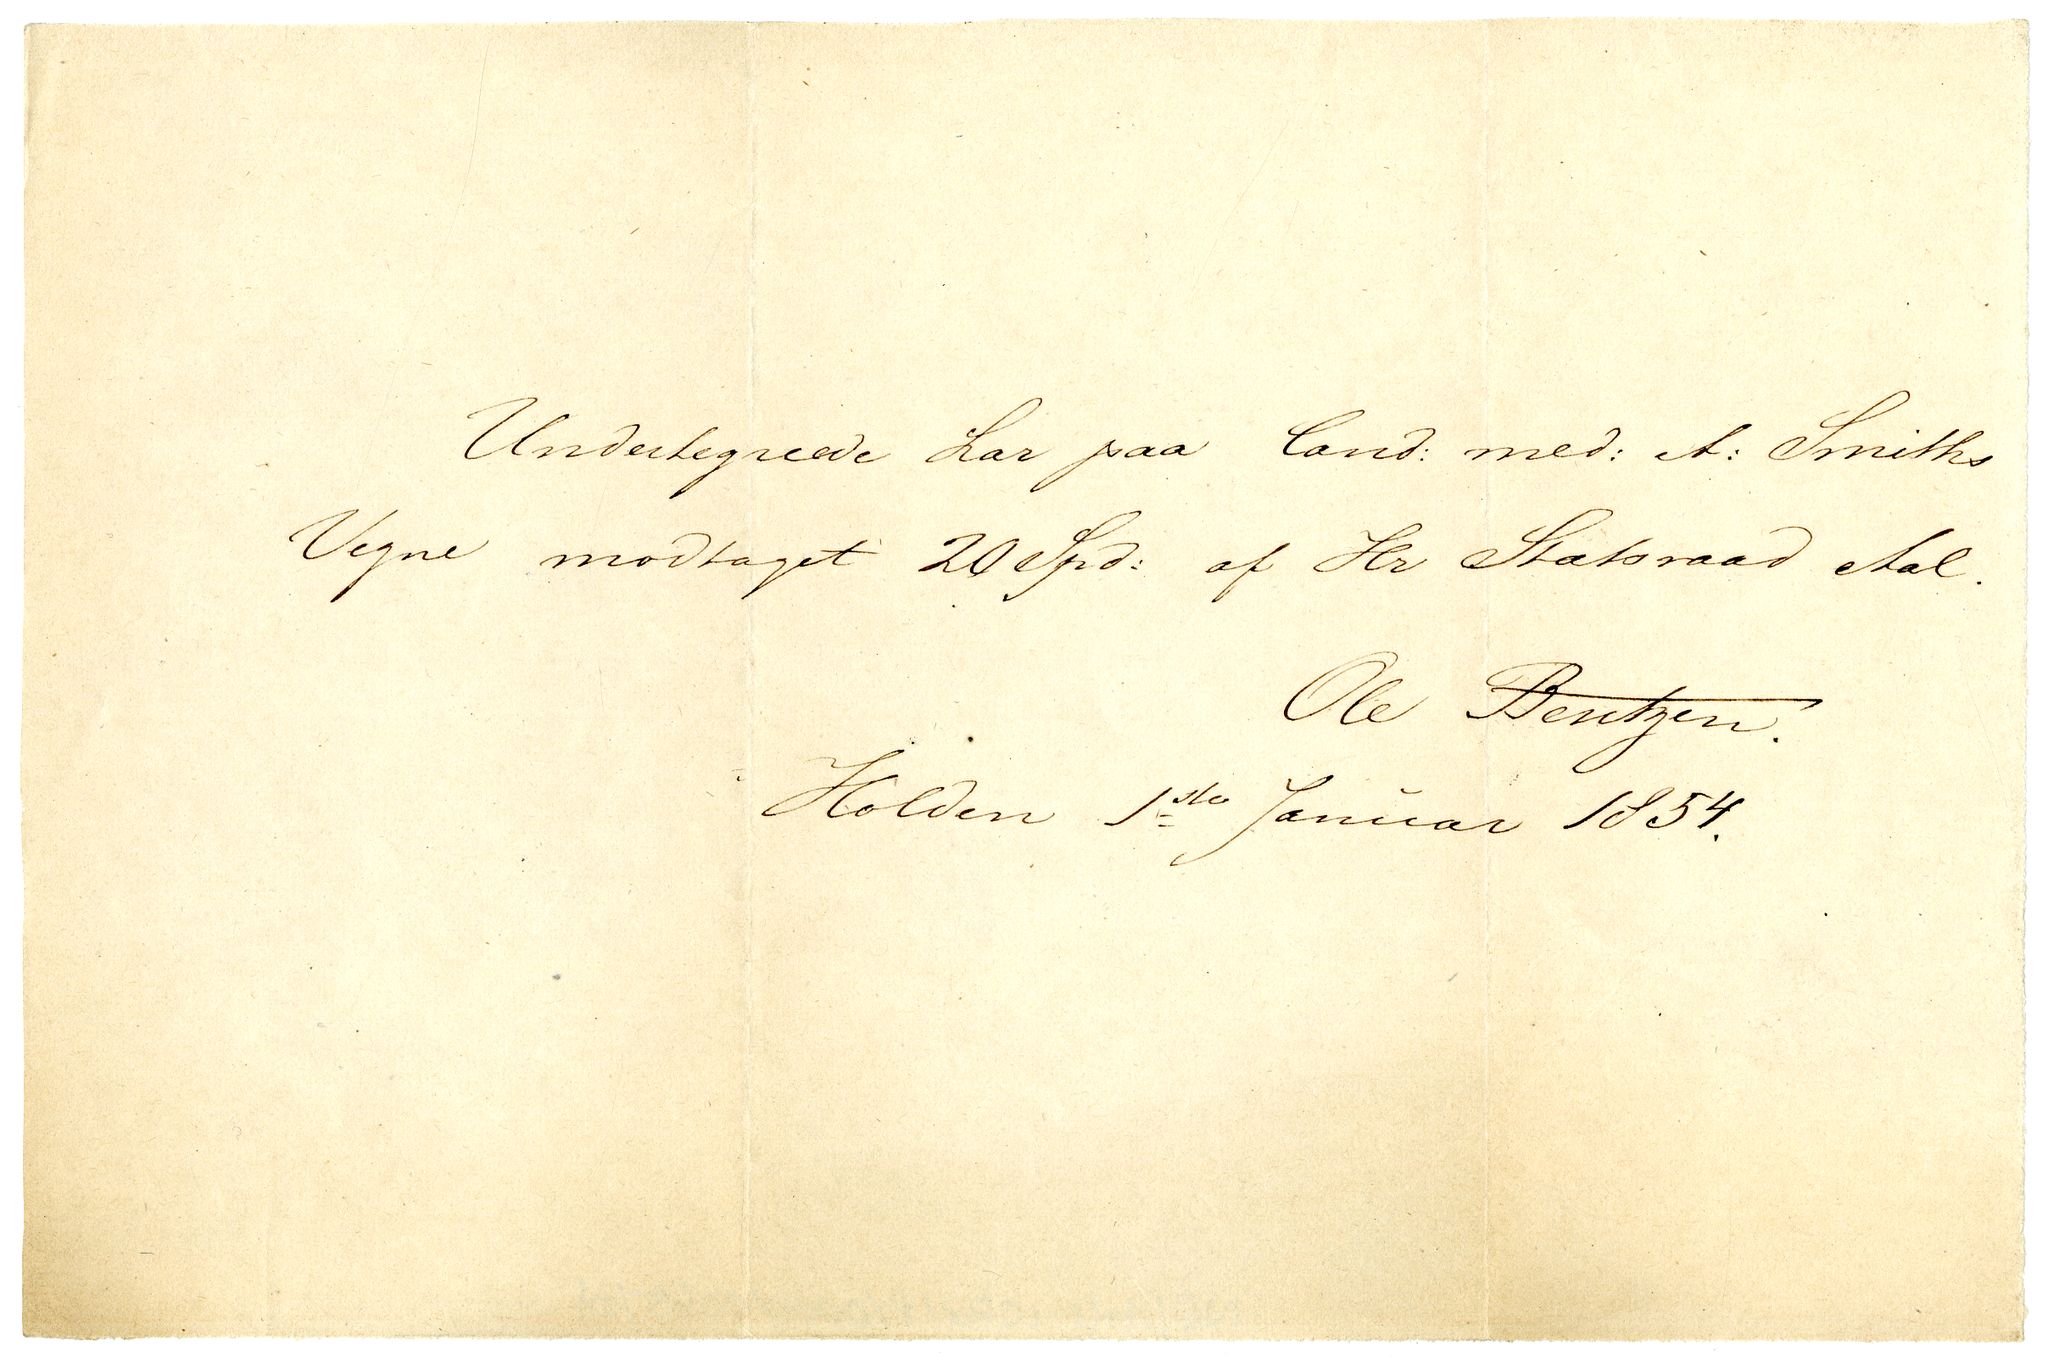 Undertegnede har paa Cand: med: A: Smiths
Vegne modtaget 20 Spd: af Hr Statsraad Aal.
Ole Bentzen.
Holden 1ste Januar 1854.